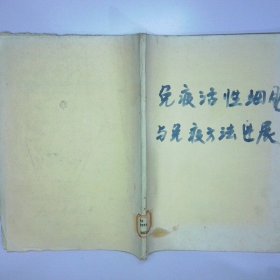 免疫活性细胞
与免疫方法进展